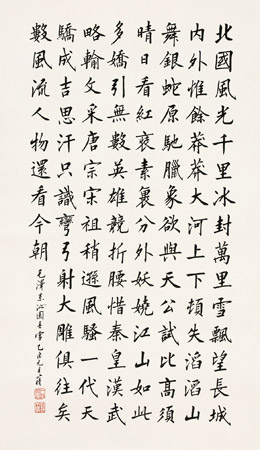 北國風光千里冰封萬里雪飄望長城
内外惟餘莽莽大河上下頓失滔滔山
舞銀蛇原馳臘象欲與天公試比高須
晴日看紅裝素裹分外妖嬈江山如此
多嬌引無數英雄競折腰惜秦皇漢武
略輸文采唐宗宋祖稍遜風騷一代天
驕成吉思汗只識彎弓射大雕俱往矣
數風流人物還看今朝
毛澤東沁園春雪